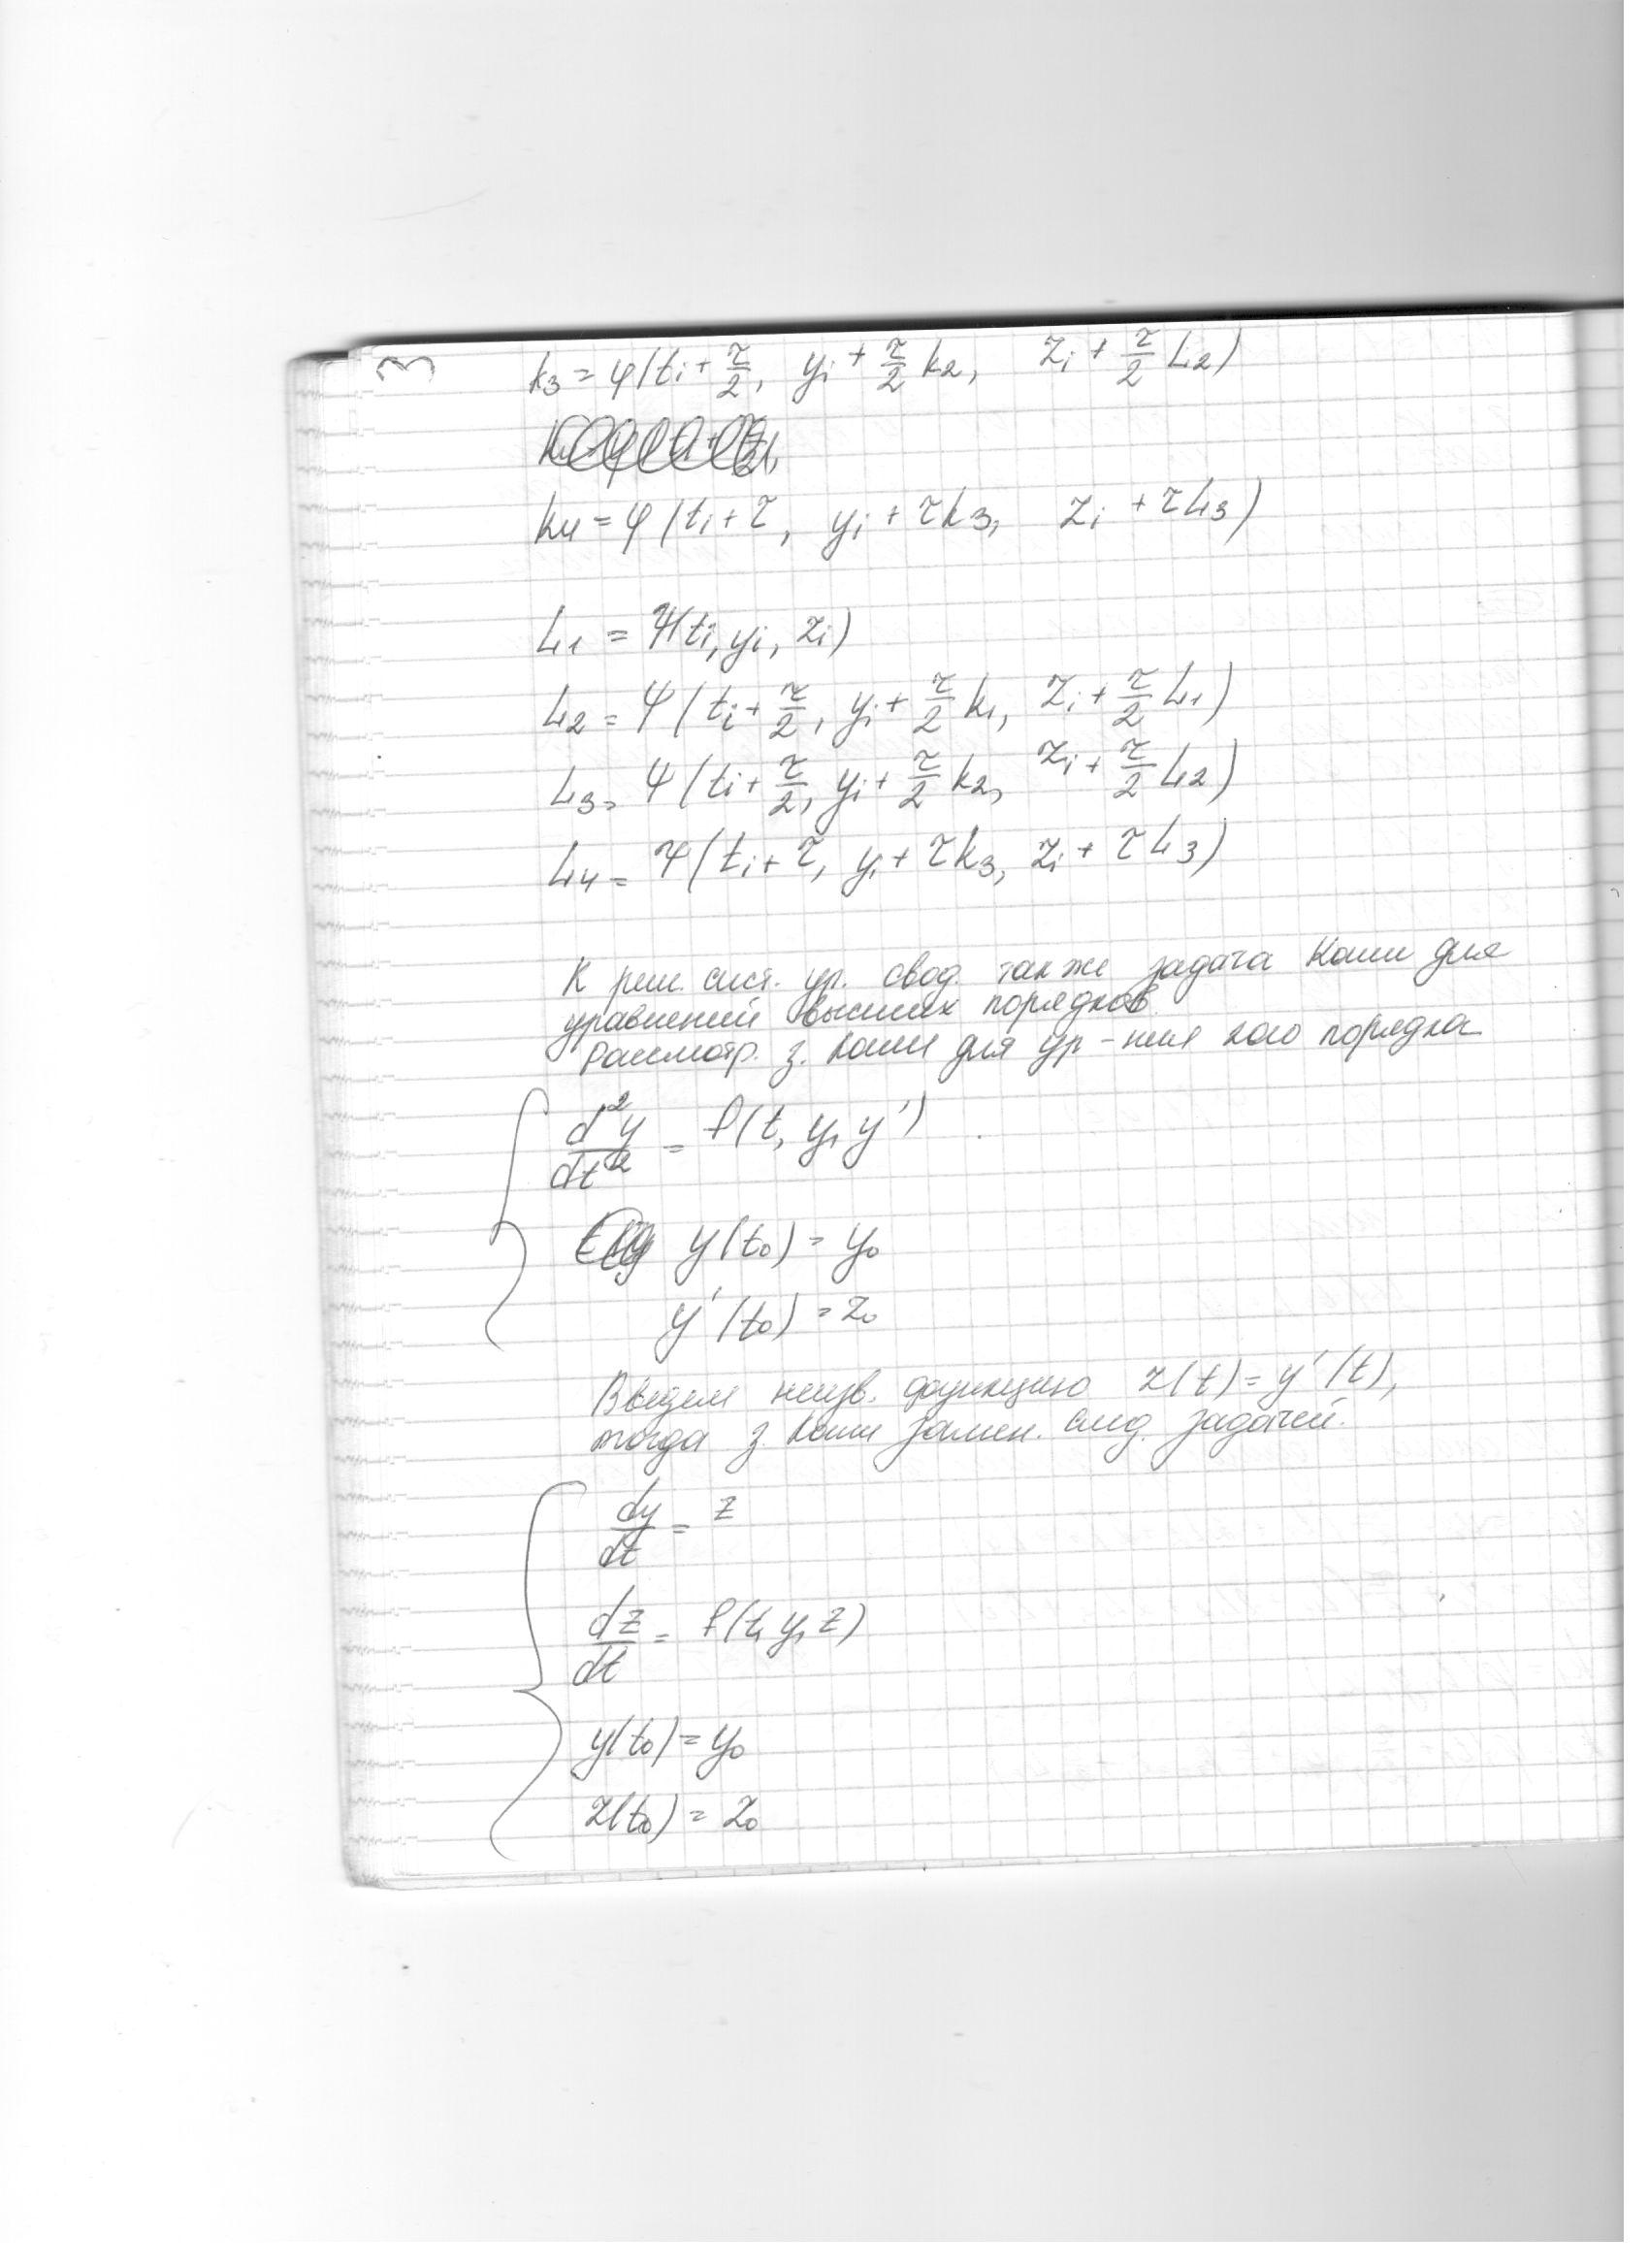 3
k₃ = φ(tᵢ + τ/2, yᵢ + τ/2 k₂, zᵢ + τ/2 L₂)
k₄ = φ(tᵢ + τ, yᵢ + τk₃, zᵢ + τL₃)
L₁ = ψ(tᵢ, yᵢ, zᵢ)
L₂ = ψ(tᵢ + τ/2, yᵢ + τ/2 k₁, zᵢ + τ/2 L₁)
L₃ = ψ(tᵢ + τ/2, yᵢ + τ/2 k₂, zᵢ + τ/2 L₂)
L₄ = ψ(tᵢ + τ, yᵢ + τk₃, zᵢ + τL₃)
К реш. сист. ур. свод. также задача Коши для
уравнений высших порядков.
Рассмотр. з. Коши для ур-ния 2ого порядка
d²y/dt² = f(t, y, y')
y(t₀) = y₀
y'(t₀) = z₀
Введем неизв. функцию z(t) = y'(t),
тогда з. Коши замен. след. задачей.
dy/dt = z
dz/dt = f(t, y, z)
y(t₀) = y₀
z(t₀) = z₀